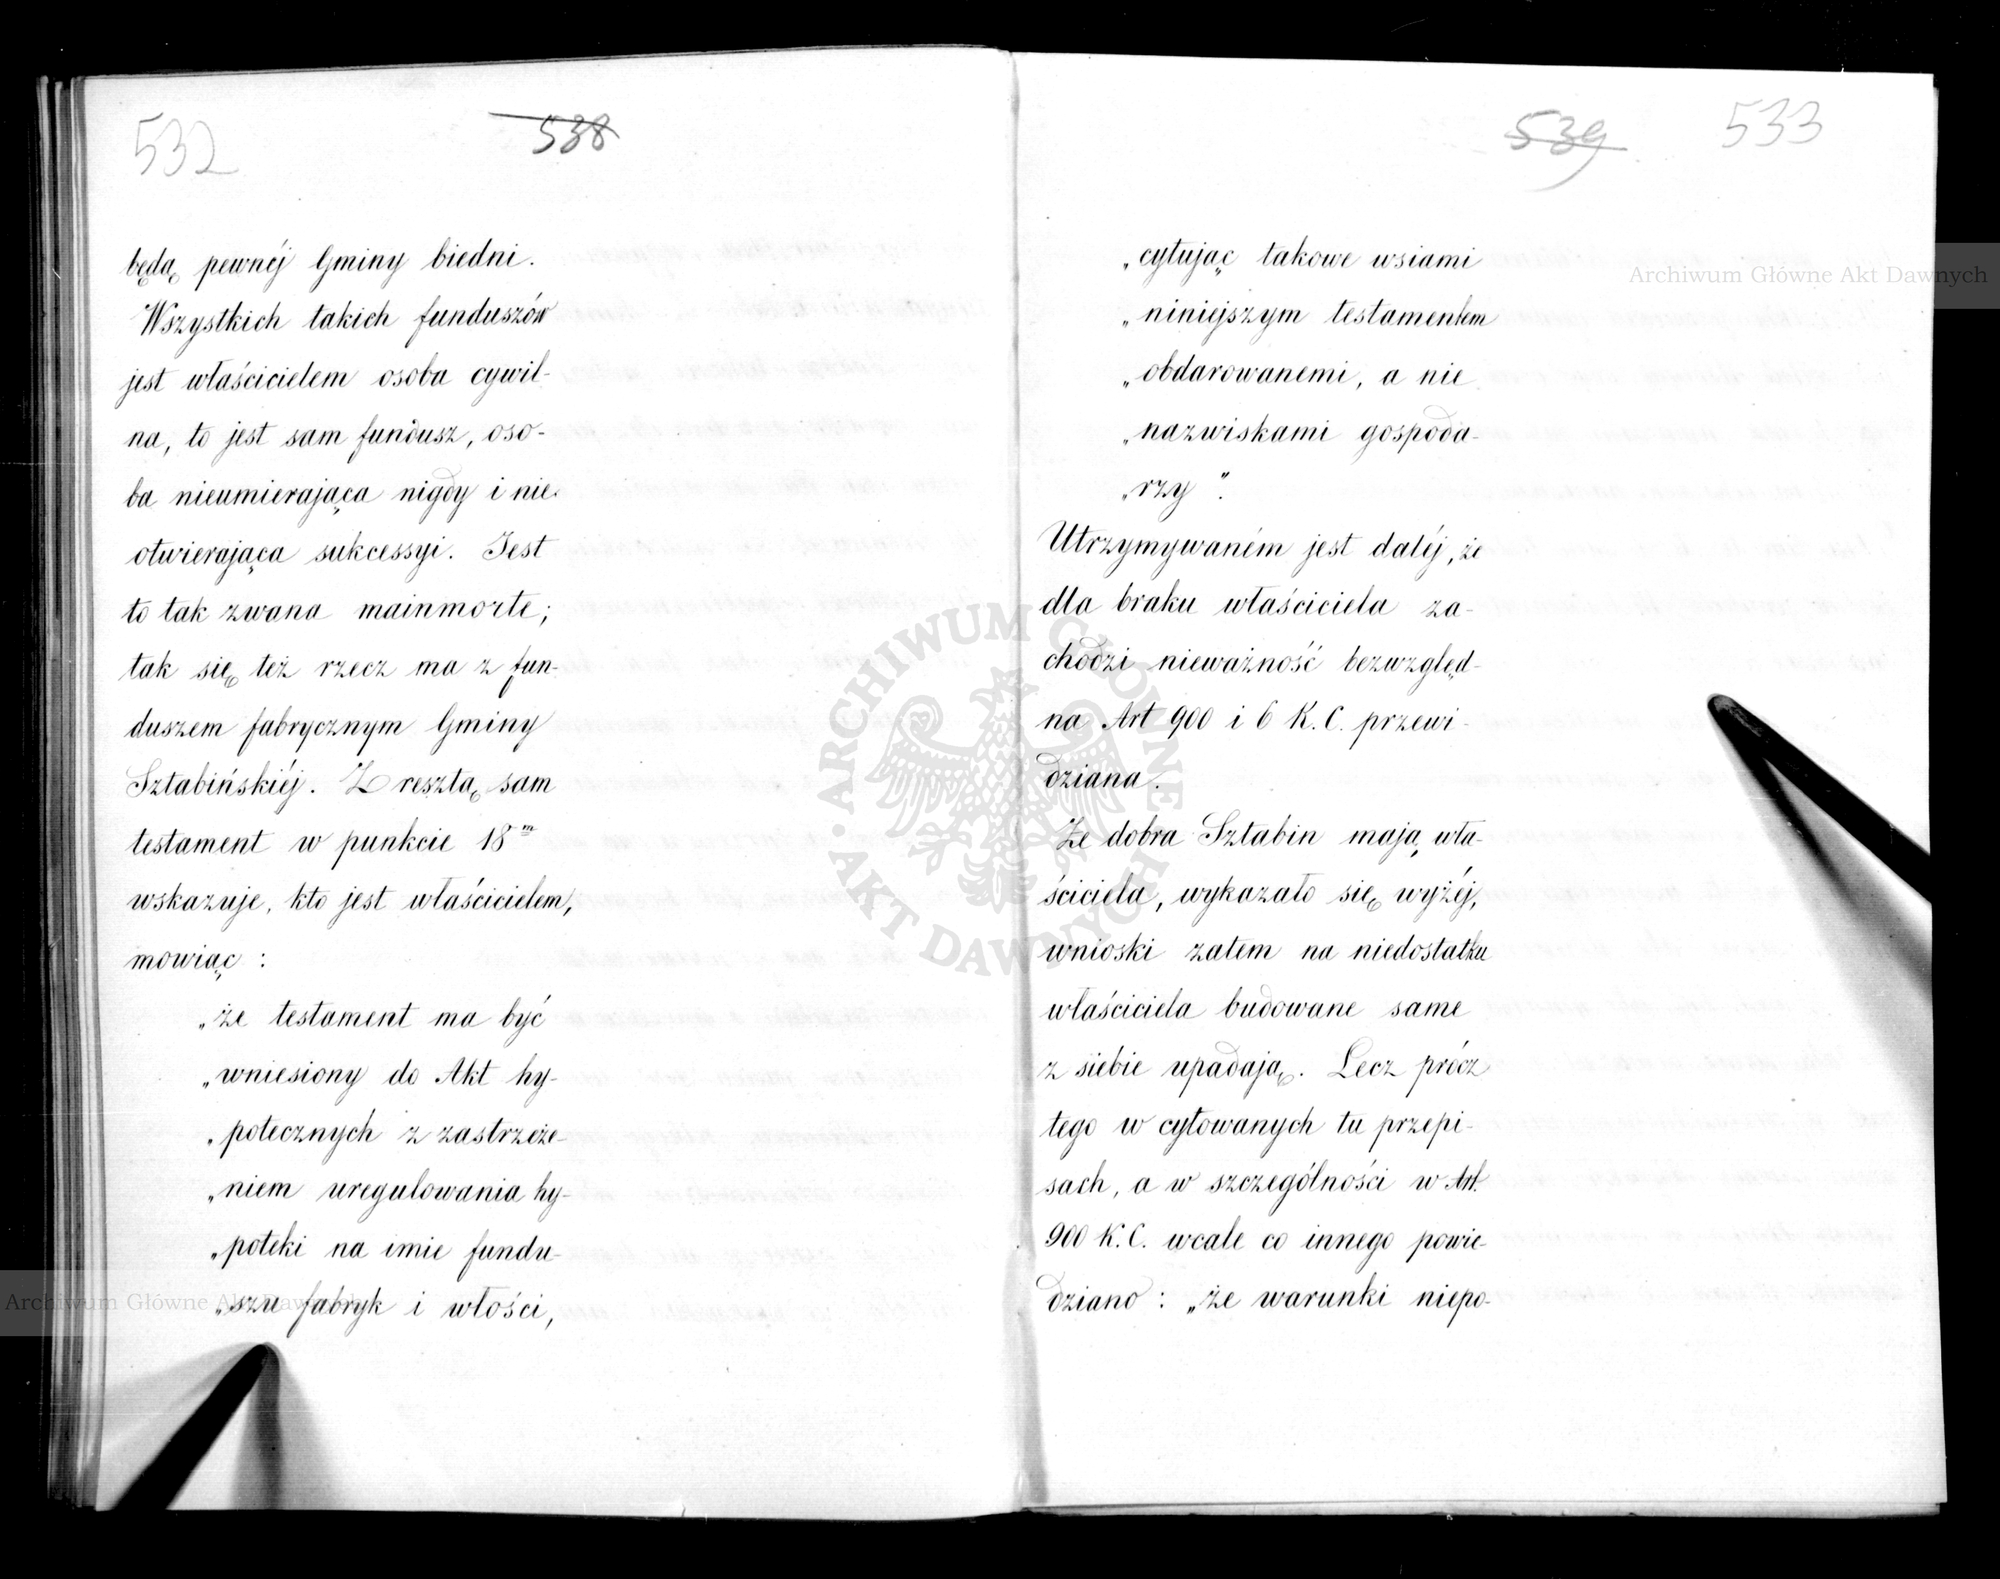 532
538
będą pewnéj Gminy biedni.
Wszystkich takich funduszów
jest właścicielem osoba cywil-
na, to jest sam fundusz, oso-
ba nieumierająca nigdy i nie
otwierająca sukcessyi. Jest
to tak zwana mainmorte;
tak się też rzecz ma z fun-
duszem fabrycznym Gminy
Sztabińskiéj. Z resztą sam
testament w punkcie 18m
wskazuje, kto jest właścicielem,
mowiąc :
„że testament ma być
„wniesiony do Akt hy-
„potecznych z zastrzeże-
„niem uregulowania hy-
„poteki na imie fundu-
„szu fabryk i włości,
539
533
„cytując takowe wsiami
„niniejszym testamentem
„obdarowanemi, a nie
„nazwiskami gospoda-
„rzy".
Utrzymywaném jest daléj, że
dla braku właściciela za-
chodzi nieważność bezwzględ-
na Art 900 i 6 K. C. przewi-
dziana.
Że dobra Sztabin mają wła-
ściciela, wykazało się wyżéj,
wnioski zatem na niedostatku
właściciela budowane same
z siebie upadają. Lecz prócz
tego w cytowanych tu przepi-
sach, a w szczególności w Art.
900 K. C. wcale co innego powie-
dziano : „że warunki niepo-
Archiwum Główne Akt Dawnych
ARCHIWUM GŁÓWNE AKT DAWNYCH
Archiwum Główne Akt Dawnych